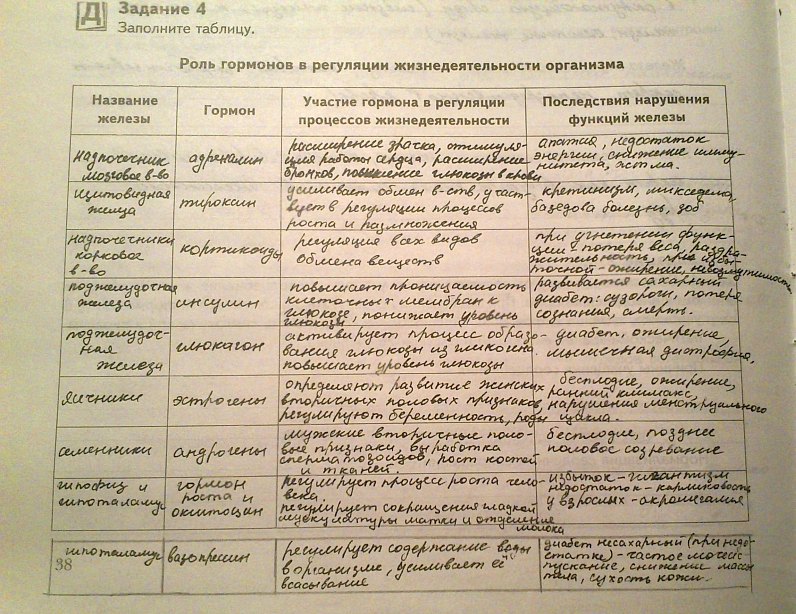 Д Задание 4
Заполните таблицу.
Роль гормонов в регуляции жизнедеятельности организма
Название железы
Гормон
Участие гормона в регуляции процессов жизнедеятельности
Последствия нарушения функций железы
надпочечник
мозговое в-во
адреналин
расширение зрачка, стимуля-
ция работы сердца, расширение
бронхов, повышение глюкозы в крови
апатия, недостаток
энергии, снижение имму-
нитета, астма.
щитовидная
желща
тироксин
усиливает обмен в-ств, участ-
вует в регуляции процессов
роста и размножения
кретинизм, микседема,
базедова болезнь, зоб
надпочечники
корковое
в-во
кортикоиды
регуляция всех видов
обмена веществ
при угнетении функ-
ции - потеря веса, раздра-
жительность, при избы-
точной - ожирение,
поджелудочная
железа
инсулин
повышает проницаемость
клеточных мембран к
глюкозе, понижает уровень
глюкозы
развивается сахарный
диабет: судороги, потеря
сознания, смерть.
поджелудоч-
ная
железа
глюкагон
активирует процесс образо-
вания глюкозы из гликогена
повышает уровень глюкозы
диабет, ожирение,
мышечная дистрофия,
яичники
эстрогены
определяют развитие женских
вторичных половых признаков,
регулируют беременность, роды
бесплодие, ожирение,
ранний климакс,
нарушения менструального
цикла.
семенники
андрогены
мужские вторичные поло-
вые признаки, выработка
сперматозоидов, рост костей
и тканей.
бесплодие, позднее
половое созревание
гипофиз и
гипоталамус
гормон
роста и
окситоцин
регулирует процесс роста чело-
века.
регулирует сокращения гладкой
мускулатуры матки и отделение
молока
избыток - гигантизм
недостаток - карликовость
у взрослых - акромегалия
гипоталамус
вазопрессин
регулирует содержание воды
в организме, усиливает её
всасывание
диабет несахарный (при недо-
статке) - частое мочеис-
пускание, снижение массы
тела, сухость кожи.
38